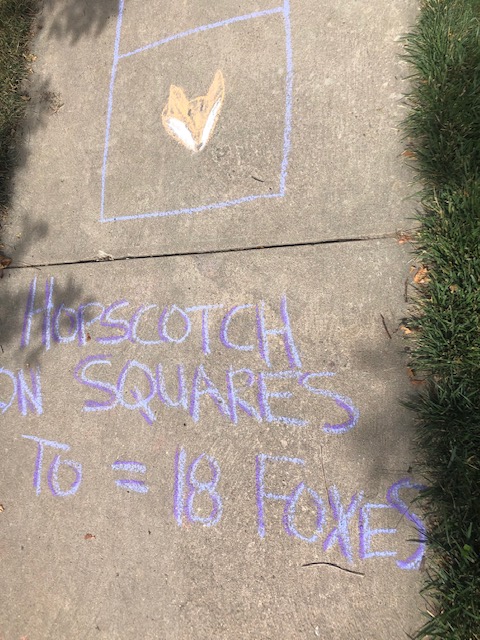 HOPSCOTCH
ON SQUARES
TO = 18 FOXES